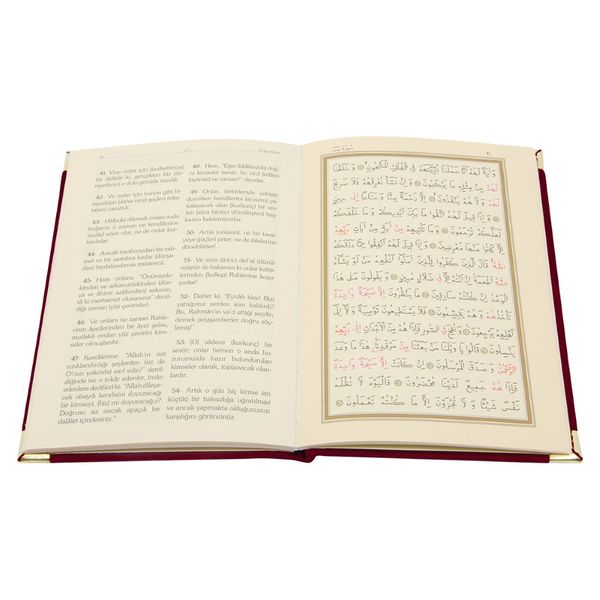 41- Yine onlar için (kudretimize)
bir delildir ki, gerçekten biz zür-
riyetlerini o dolu gemide taşıdık.
42- Ve onlar için bunun gibi bi-
necekleri (daha nice) şeyleri (vâsı-
taları) yarattık.
43- Hâlbuki dilersek onları suda
boğarız; o zaman ne kendilerine
imdâd eden olur, ne de onlar kur-
tarılırlar.
44- Ancak tarafımızdan bir rah-
met ve bir zamana kadar (dünya-
dan) faydalandırma müstesnâ.
45- Hem onlara: "Önünüzde-
kinden ve arkanızdakinden (dün-
ya ve âhiret azâbından) sakının;
tâ ki merhamet olunasınız" denil-
diği zaman (yüz çevirirler).
46- Ve onlara ne zaman Rable-
rinin âyetlerinden bir âyet gelse,
mutlaka ondan yüz çevirici kim-
seler olmuşlardır.
47- Kendilerine: "Allah'ın sizi
rızıklandırdığı şeylerden (siz de
O'nun yolunda) sarf edin!" denil-
diğinde ise o inkâr edenler, îmân
edenlere dediler ki: "Allah dileye-
cek olsaydı kendisini doyuracağı
bir kimseyi, (biz mi) doyuracağız?
Doğrusu siz ancak apaçık bir
dalâlet içindesiniz."
48- Hem, "Eğer (iddiânızda) doğ-
ru kimseler iseniz, bu vaad (edilen
azab) ne zaman?" diyorlar.
49- Onlar, birbirleriyle çekişip
dururlarken kendilerini (ansızın) ya-
kalayacak olan (korkunç) bir ses-
den (sûra birinci üfürülüşten) baş-
kasını beklemiyorlar.
50- Artık (onlar) ne bir tavsi-
yeye güçleri yeter, ne de âilelerine
dönebilirler!
51- Ve sûra (ikinci def'a) üfürül-
müştür de bakarsın ki onlar kabir-
lerinden (kalkıp) Rablerine koşu-
yorlardır.
52- Derler ki: "Eyvâh bize! Bizi
yattığımız yerden kim kaldırdı?
Bu, Rahmân'ın va'd ettiği şeydir;
demek peygamberler doğru söyle-
miş!"
53- (O) sâdece (korkunç) bir
sestir; onlar hemen o anda hu-
zurumuzda hazır bulundurulan
kimseler olarak, toplanacak olan-
lardır.
54- Artık o gün hiç kimse (en
küçük) bir haksızlığa uğratılmaz
ve ancak yapmakta olduğunuzun
karşılığını görürsünüz.
وَاٰيَةٌ لَهُمْ اَنَّا حَمَلْنَا ذُرِّيَّتَهُمْ فِي الْفُلْكِ الْمَشْحُونِ وَخَلَقْنَا
لَهُمْ مِنْ مِثْلِهِ مَا يَرْكَبُونَ وَاِنْ نَشَأْ نُغْرِقْهُمْ فَلَا صَرِيخَ
لَهُمْ وَلَا هُمْ يُنْقَذُونَ اِلَّا رَحْمَةً مِنَّا وَمَتَاعًا اِلٰى
حِينٍ وَاِذَا قِيلَ لَهُمُ اتَّقُوا مَا بَيْنَ اَيْدِيكُمْ وَمَا خَلْفَكُمْ
لَعَلَّكُمْ تُرْحَمُونَ وَمَا تَأْتِيهِمْ مِنْ اٰيَةٍ مِنْ اٰيَاتِ رَبِّهِمْ
اِلَّا كَانُوا عَنْهَا مُعْرِضِينَ وَاِذَا قِيلَ لَهُمْ اَنْفِقُوا مِمَّا رَزَقَكُمُ
اللّٰهُ قَالَ الَّذِينَ كَفَرُوا لِلَّذِينَ اٰمَنُوا اَنُطْعِمُ مَنْ لَوْ يَشَاءُ
اللّٰهُ اَطْعَمَهُ اِنْ اَنْتُمْ اِلَّا فِي ضَلَالٍ مُبِينٍ وَيَقُولُونَ مَتٰى هٰذَا
الْوَعْدُ اِنْ كُنْتُمْ صَادِقِينَ مَا يَنْظُرُونَ اِلَّا صَيْحَةً وَاحِدَةً
تَأْخُذُهُمْ وَهُمْ يَخِصِّمُونَ فَلَا يَسْتَطِيعُونَ تَوْصِيَةً وَلَا اِلٰى
اَهْلِهِمْ يَرْجِعُونَ وَنُفِخَ فِي الصُّورِ فَاِذَا هُمْ مِنَ الْاَجْدَاثِ اِلٰى رَبِّهِمْ
يَنْسِلُونَ قَالُوا يَا وَيْلَنَا مَنْ بَعَثَنَا مِنْ مَرْقَدِنَا هٰذَا مَا وَعَدَ
الرَّحْمٰنُ وَصَدَقَ الْمُرْسَلُونَ اِنْ كَانَتْ اِلَّا صَيْحَةً وَاحِدَةً
فَاِذَا هُمْ جَمِيعٌ لَدَيْنَا مُحْضَرُونَ فَالْيَوْمَ لَا تُظْلَمُ
نَفْسٌ شَيْئًا وَلَا تُجْزَوْنَ اِلَّا مَا كُنْتُمْ تَعْمَلُونَ